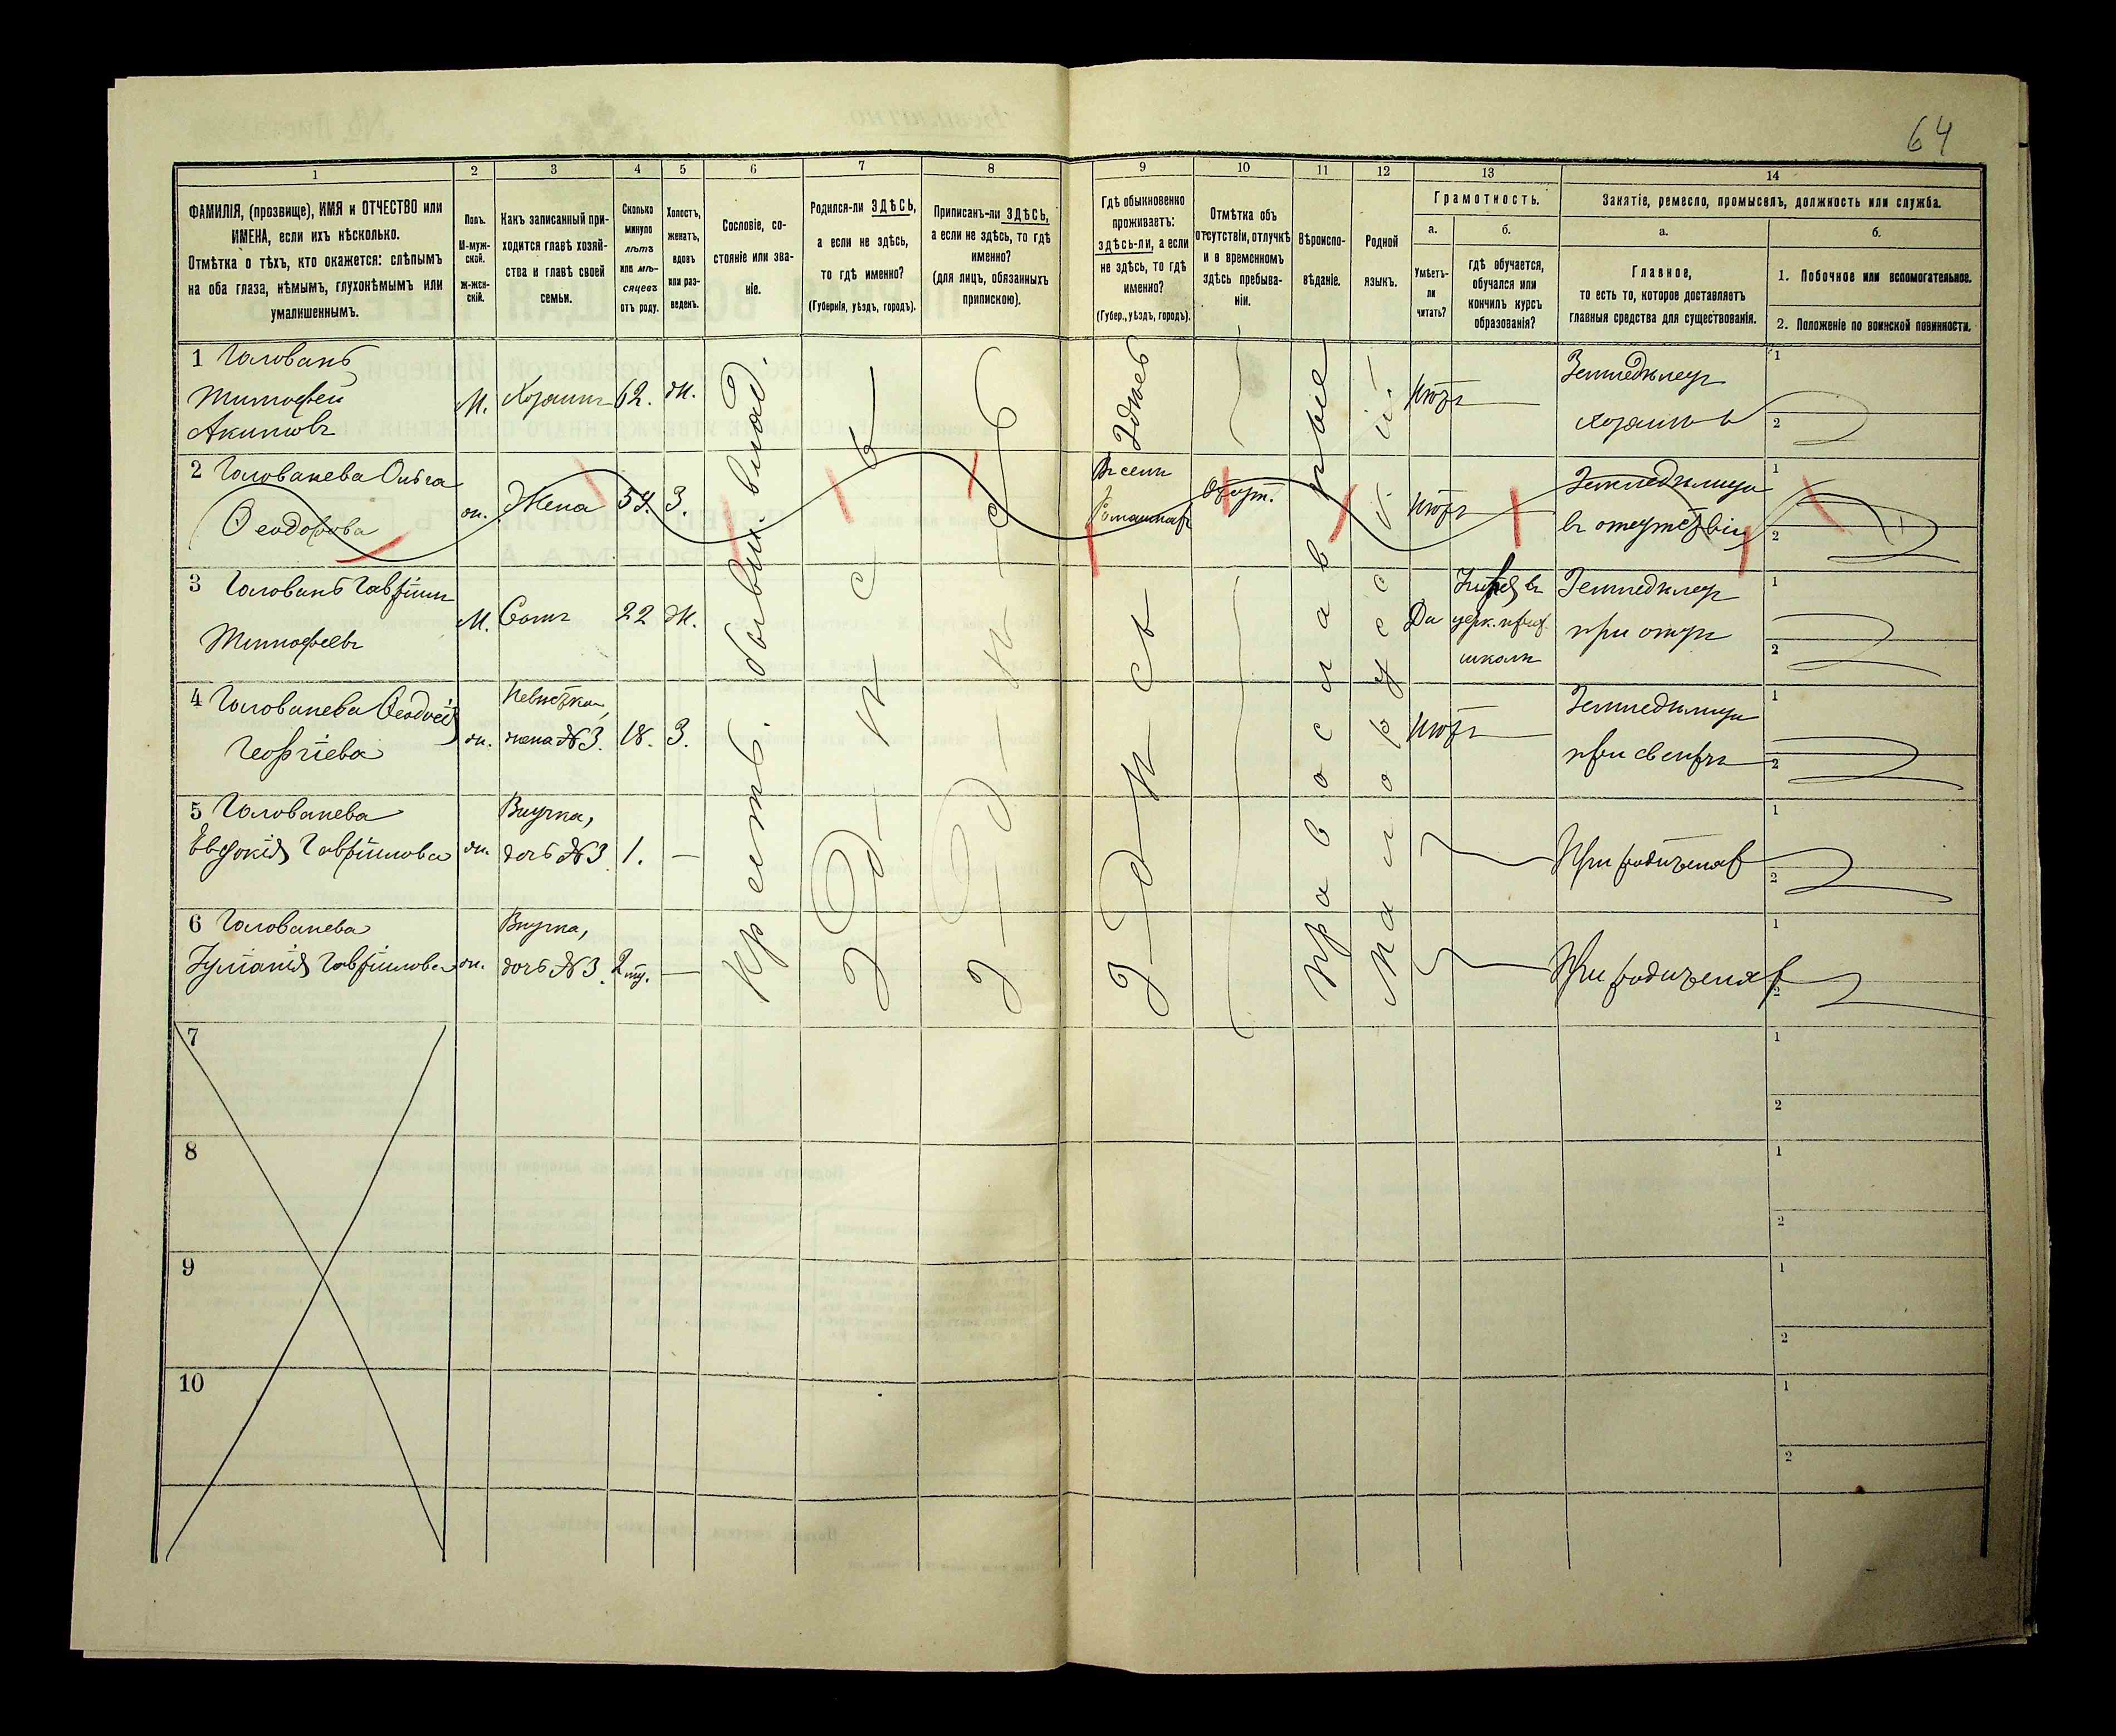 64
1
2
3
4
5
6
7
8
9
10
11
12
13
14
ФАМИЛІЯ, (прозвище), ИМЯ и ОТЧЕСТВО или
ИМЕНА, если ихъ нѣсколько.
Отмѣтка о тѣхъ, кто окажется: слѣпымъ
на оба глаза, нѣмымъ, глухонѣмымъ или
умалишеннымъ.
Полъ.
М-муж-
ской.
Ж-жен-
скій.
Какъ записанный при-
ходится главѣ хозяй-
ства и главѣ своей
семьи.
Сколько
минуло
лѣтъ
или мѣ-
сяцевъ
отъ роду.
Холостъ,
женатъ,
вдовъ
или раз-
веденъ.
Сословіе, со-
стояніе или зва-
ніе.
Родился-ли ЗДѢСЬ,
а если не здѣсь,
то гдѣ именно?
(Губернія, уѣздъ, городъ).
Приписанъ-ли ЗДѢСЬ,
а если не здѣсь, то гдѣ
именно?
(для лицъ, обязанныхъ
припискою).
Гдѣ обыкновенно
проживаетъ:
здѣсь-ли, а если
не здѣсь, то гдѣ
именно?
(Губер., уѣздъ, городъ).
Отмѣтка объ
отсутствіи, отлучкѣ
и о временномъ
здѣсь пребыва-
ніи.
Вѣроиспо-
вѣданіе.
Родной
языкъ.
Грамотность.
а.
Умѣетъ-
ли
читать?
б.
гдѣ обучается,
обучался или
кончилъ курсъ
образованія?
Занятіе, ремесло, промыселъ, должность или служба.
а.
Главное,
то есть то, которое доставляетъ
главныя средства для существованія.
б.
1. Побочное или вспомогательное.
2. Положеніе по воинской повинности.
1 Головань
Тимофей
Акимовъ
М.
Хозяинъ
62.
Ж.
Здѣсь
Нѣтъ
Земледѣлецъ
хозяинъ
1
2
2 Голованева Ольга
Ѳеодорова
ж.
Жена
З.
Въ селѣ
Отсут.
Нѣтъ
Земледѣлица
въ отсутствіи
1
2
3 Головань Гавріилъ
Тимофеевъ
М.
Сынъ
22
Ж.
Да
церк. прих.
школѣ
Земледѣлецъ
при отцѣ
1
2
4 Голованева Ѳеодосія
Георгіева
ж.
Невѣстка,
жена №3.
18.
З.
Нѣтъ
Земледѣлица
при свекрѣ
1
2
5 Голованева
Евфокія Гавріилова
ж.
Внучка,
дочь №3
1.
—
При родителяхъ
1
2
6 Голованева
Іуліанія Гавріилова
ж.
Внучка,
дочь №3.
—
При родителяхъ
1
2
Крестъ. бывш. влад.
Здѣсь
Здѣсь
Здѣсь
Православные
Малорусскій
7
1
2
8
1
2
9
1
2
10
1
2